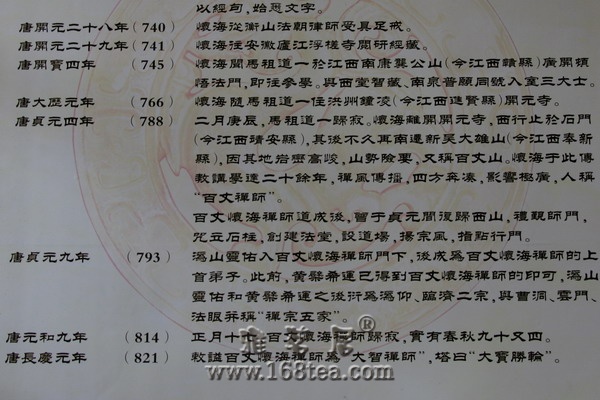 以經句，始悉文字。
唐開元二十八年（740） 懷海從衡山法朝律師受具足戒。
唐開元二十九年（741） 懷海往安徽廬江浮槎寺閱研經藏。
唐開寶四年 （745） 懷海聞馬祖道一於江西南康龔公山（今江西贛縣）廣開頓
悟法門，即往參學。與西堂智藏、南泉普願同號入室三大士。
唐大歷元年 （766） 懷海隨馬祖道一住洪州鐘凌（今江西進賢縣）開元寺。
唐貞元四年 （788） 二月庚辰，馬祖道一歸寂。懷海離開開元寺，西行止於石門
（今江西靖安縣），其後不久再南遷新吴大雄山（今江西奉新
縣），因其地岩巒高峻，山勢險要，又稱百丈山。懷海于此傳
教講學達二十余年，禪風傳播，四方奔湊，影響極廣，人稱
“百丈禪師”。
百丈懷海禪師道成後，曾于貞元間復歸西山，禮覲師門，
咒立石柱，創建法堂，設道場，揚宗風，指點行門。
唐貞元九年 （793） 溈山靈佑入百丈懷海禪師門下，後成爲百丈懷海禪師的上
首弟子。此前，黄檗希運已得到百丈懷海禪師的印可，溈山
靈佑和黄檗希運之後衍爲溈仰、臨濟二宗，與曹洞、雲門、
法眼并稱“禪宗五家”。
唐元和九年 （814） 正月十七，百丈懷海禪師歸寂，實有春秋九十又四。
唐長慶元年 （821） 敕謚百丈懷海禪師爲“大智禪師”，塔曰“大寶勝輪”。
®
www.168tea.com